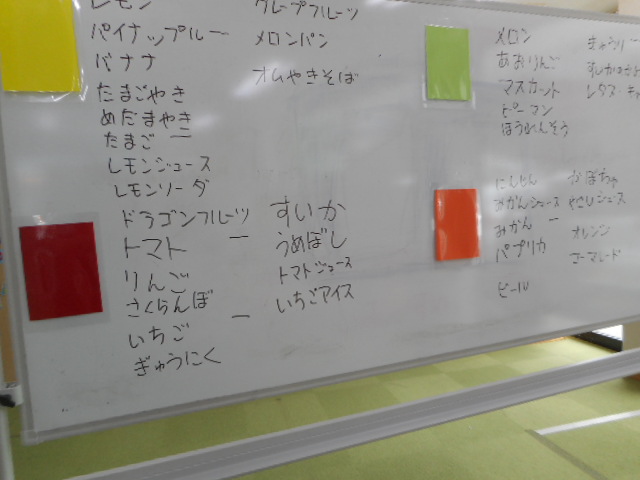 レモン
パイナップルー
バナナ
たまごやき
めだまやき
たまご ー
レモンジュース
レモンソーダ
グレープフルーツ
メロンパン
オムやきそば
メロン
あおりんご
マスカット
ピーマン
ほうれんそう
きゅうり
レタス・キャ
ドラゴンフルーツ
トマト ー
りんご
さくらんぼ
いちご ー
ぎゅうにく
すいか
うめぼし
トマトジュース
いちごアイス
にんじん
みかんジュース
みかん ー
パプリカ
ビール
かぼちゃ
やさいジュース
オレンジ
マーマレード